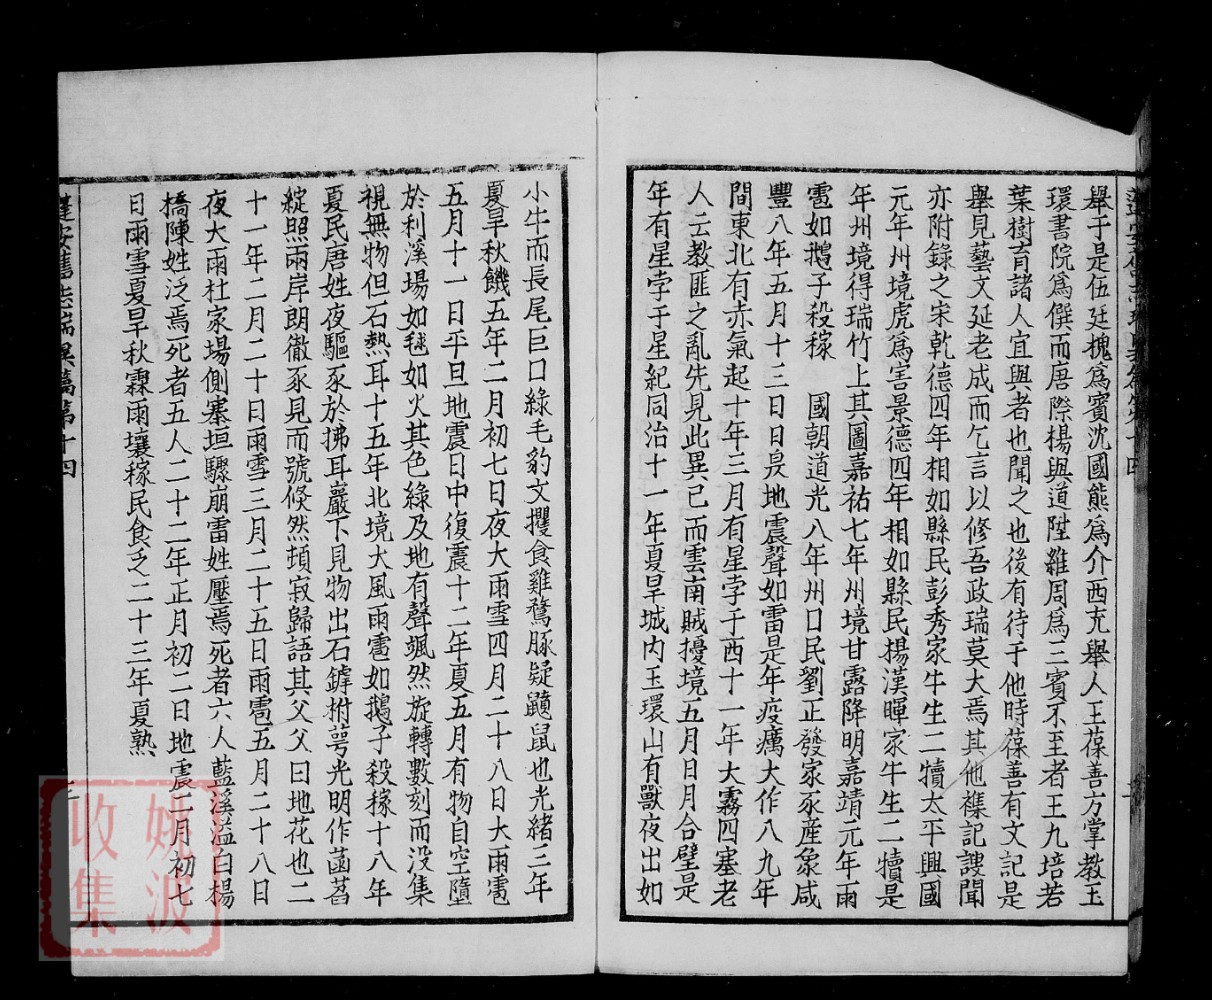 舉于是伍廷槐爲賓沈國熊爲介西充舉人王葆善方掌教玉
環書院爲僎而唐際楊與道陞維周爲三賓不至者王九培若
葉樹育諸人宜與者也聞之也後有待于他時葆善有文記是
舉見藝文延老成而乞言以修吾政瑞莫大焉其他襍記謏聞
亦附錄之宋乾德四年相如縣民彭秀家牛生二犢太平興國
元年州境虎爲害景德四年相如縣民楊漢暉家牛生二犢是
年州境得瑞竹上其圖嘉祐七年州境甘露降明嘉靖元年雨
雹如鵝子殺稼 國朝道光八年州口民劉正發家豕產象咸
豐八年五月十三日日昃地震聲如雷是年疫癘大作八九年
間東北有赤氣起十年三月有星孛于西十一年大霧四塞老
人云教匪之亂先見此異已而雲南賊擾境五月日月合璧是
年有星孛于星紀同治十一年夏旱城內玉環山有獸夜出如
小牛而長尾巨口綠毛豹文攫食雞鶩豚疑鼷鼠也光緒三年
夏旱秋饑五年二月初七日夜大雨雪四月二十八日大雨雹
五月十一日平旦地震日中復震十二年夏五月有物自空墮
於利溪場如毬如火其色綠及地有聲颯然旋轉數刻而没集
視無物但石熱耳十五年北境大風雨雹如鵝子殺稼十八年
夏民唐姓夜驅豕於拂耳巖下見物出石罅柎萼光明作菡萏
綻照兩岸朗徹豕見而號倏然頓寂歸語其父父曰地花也二
十一年二月二十日雨雪三月二十五日雨雹五月二十八日
夜大雨杜家場側寨垣驟崩雷姓壓焉死者六人藍溪溢白楊
橋陳姓泛焉死者五人二十二年正月初二日地震二月初七
日雨雪夏旱秋霖雨壤稼民食乏二十三年夏熟
蓬安舊志瑞異篇第十四
姚波
收集